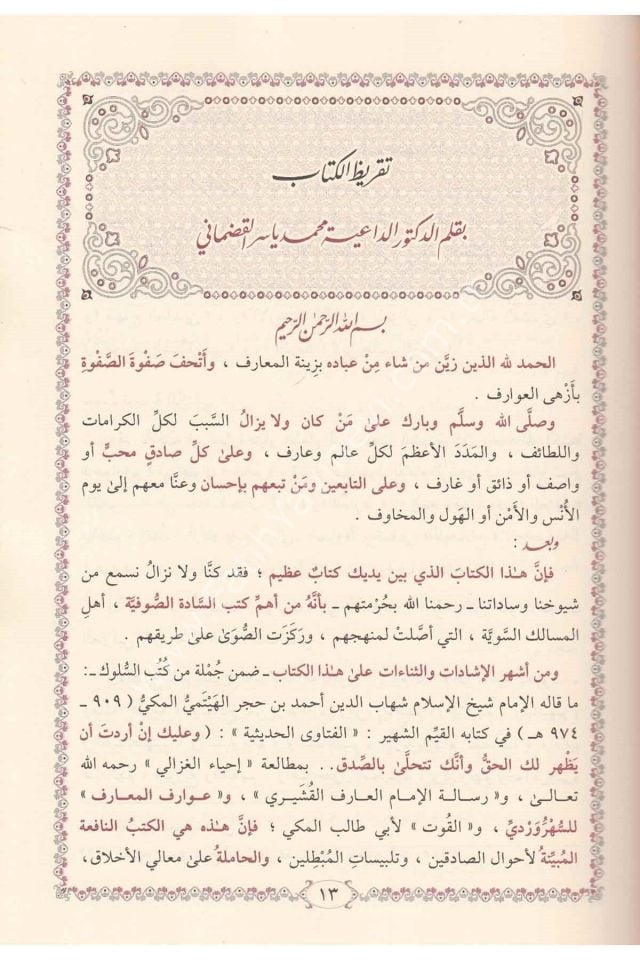 تقريظ الكتاب
بقلم الدكتور الداعية محمد ياسر القضماني
بسم الله الرحمن الرحيم
الحمد لله الذين زيَّن من شاء مِنْ عباده بزِينة المعارف ، وأَتْحفَ صَفْوةَ الصَّفْوةِ
بأَزْهى العوارف .
وصلَّى الله وسلَّم وبارك علىٰ مَنْ كان ولا يزالُ السَّببَ لكلِّ الكرامات
واللطائف ، والمَدَدَ الأعظمَ لكلِّ عالم وعارف ، وعلىٰ كلِّ صادقٍ محبٍّ أو
واصف أو ذائق أو غارف ، وعلى التابعين ومَنْ تبعهم بإحسان وعنَّا معهم إلىٰ يوم
الأُنْس والأَمْن أو الهَول والمخاوف .
وبعد :
فإنَّ هـٰذا الكتابَ الذي بين يديك كتابٌ عظيم ؛ فقد كنَّا ولا نزالُ نسمع من
شيوخنا وساداتنا ـ رحمنا الله بحُرْمتهم ـ بأنَّهُ من أهمِّ كتب السَّادة الصُّوفيَّة ، أهلِ
المسالك السَّويَّة ، التي أَصَّلتْ لمنهجهم ، ورَكَزَت الصُّوَىٰ علىٰ طريقهم .
ومن أشهر الإشادات والثناءات علىٰ هـٰذا الكتاب ـ ضمن جُمْلة من كُتُب السُّلوك ـ :
ما قاله الإمام شيخ الإسلام شهاب الدين أحمد بن حجر الهَيْتَميُّ المكيُّ ( ٩٠٩ ـ
٩٧٤ هـ ) في كتابه القيِّم الشهير : « الفتاوى الحديثية » : ( وعليك إنْ أردتَ أن
يَظْهر لك الحقُّ وأنَّك تتحلَّىٰ بالصِّدق . . بمطالعة « إحياء الغزالي » رحمه الله
تعـالىٰ ، و« رسـالة الإمـام العارف القُشَيْري » ، و« عـوارف المعـارف »
للسُّهْرُوَرْديِّ ، و« القُوت » لأبي طالب المكي ؛ فإنَّ هذه هي الكتبُ النافعة
المُبيِّنةُ لأحوال الصادقين ، وتلبيسات المُبْطِلين ، والحاملةُ علىٰ معالي الأخلاق،
١٣